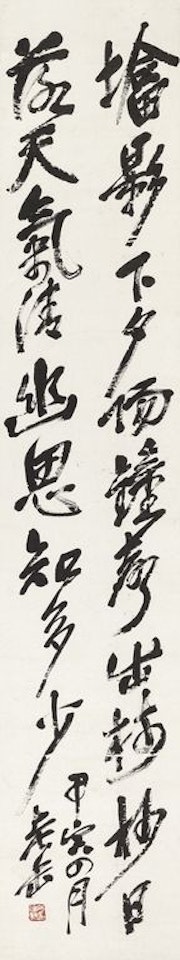 墖影下夕陽鐘聲出林杪日
落天氣清幽思知多少
甲寅四月
老缶